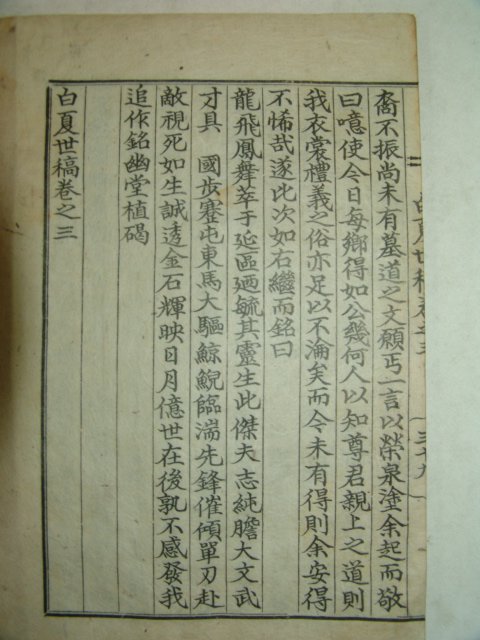 裔不振尚未有墓道之文願丐一言以榮泉塗余起而敬
曰噫使今日每鄉得如公幾何人以知尊君親上之道則
我衣裳禮義之俗亦足以不淪矣而今未有得則余安得
不悕哉遂比次如右繼而銘曰
龍飛鳳舞萃于延區廼毓其靈生此傑夫志純膽大文武
才具 國步蹇屯東馬大驅鯨鯢臨湍先鋒催傾單刃赴
敵視死如生誠透金石輝映日月億世在後孰不感發我
追作銘幽堂植碣
白夏世稿卷之三